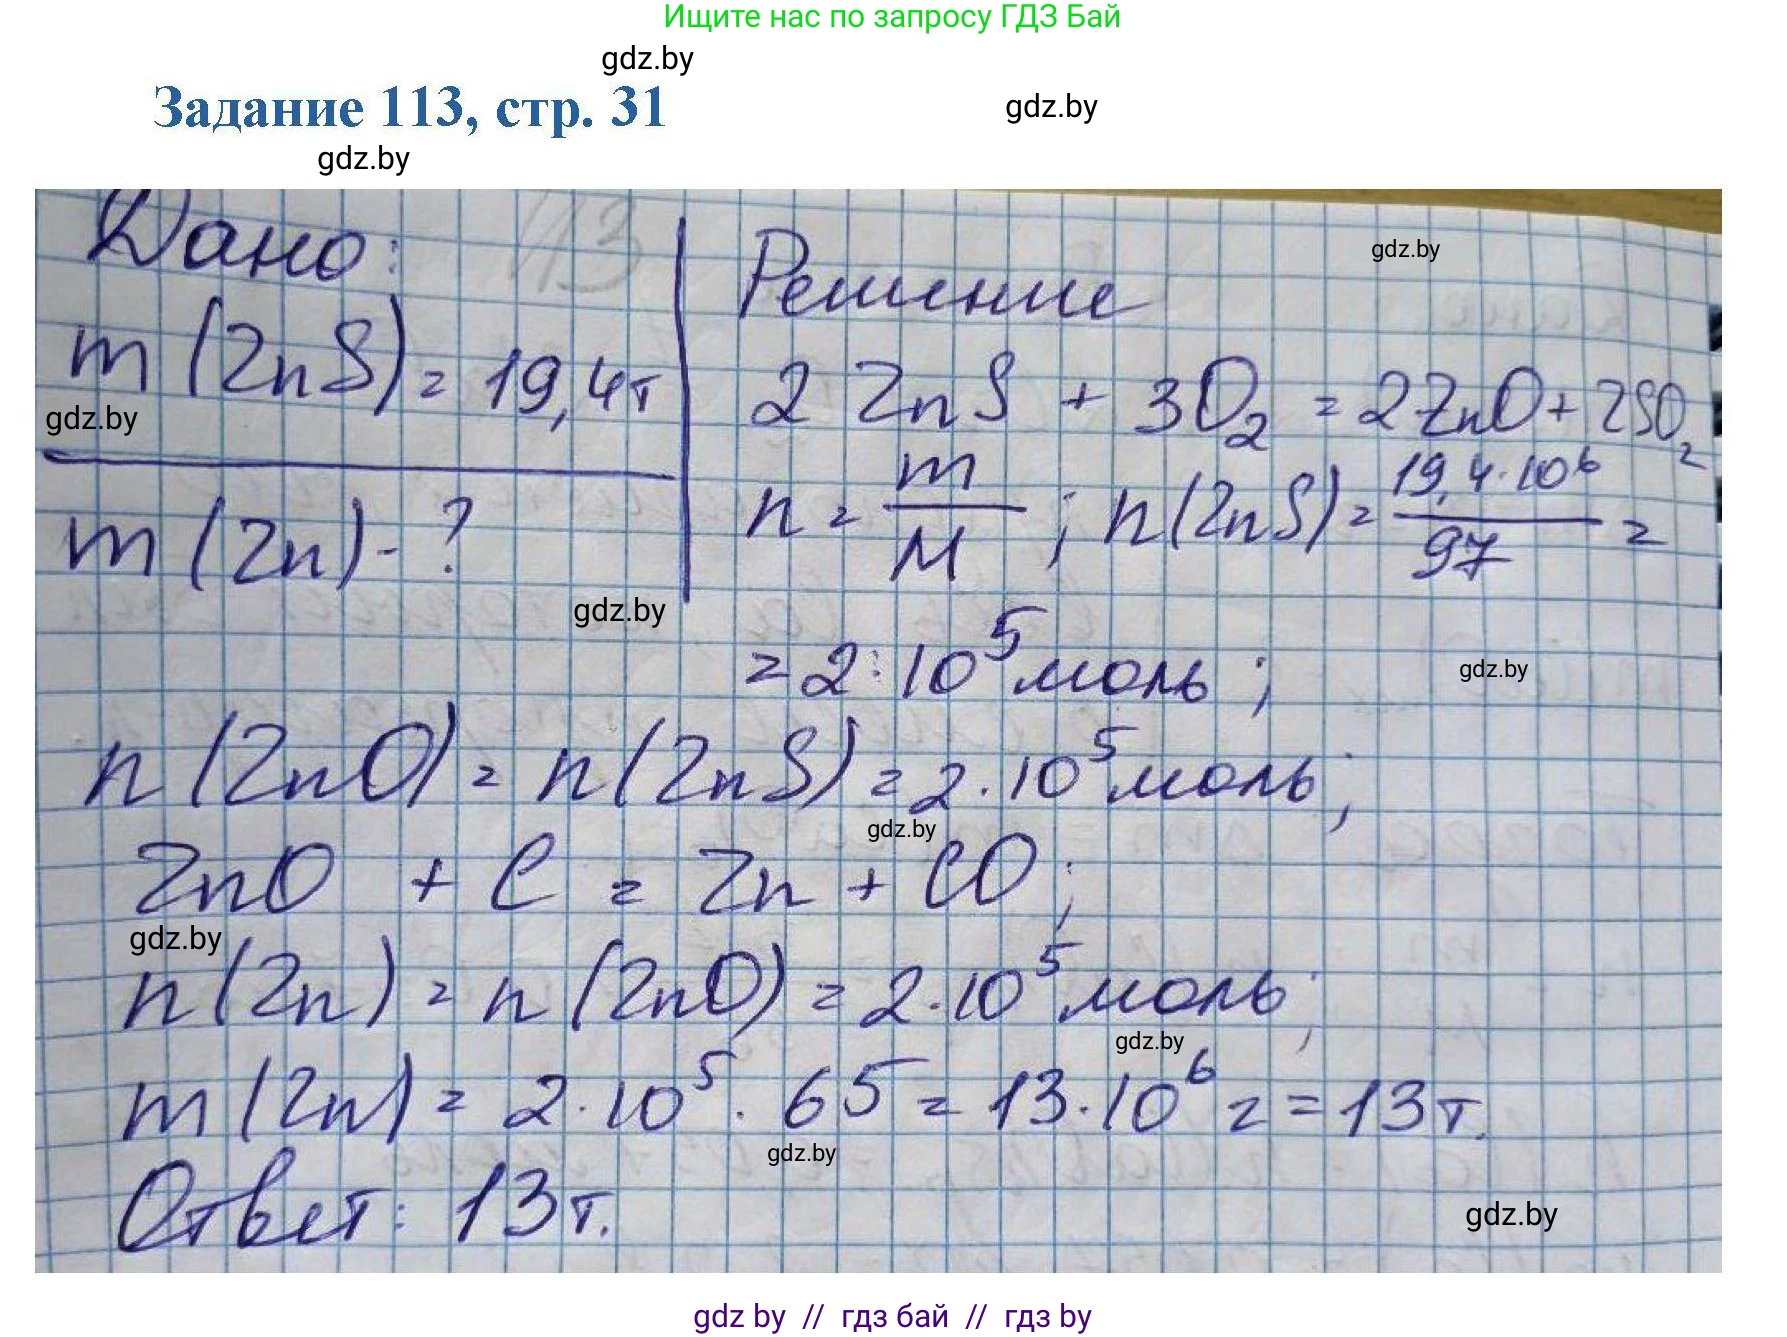 Ищите нас по запросу ГДЗ Бай
gdz.by
Задание 113, стр. 31
gdz.by
gdz.by
113
Дано:
m (ZnS) = 19,4т
gdz.by
m (Zn) - ?
gdz.by
Решение
gdz.by
2 ZnS + 3O₂ = 2ZnO + 2SO₂
n = m/M ; n(ZnS) = 19,4·10⁶/97 =
gdz.by
= 2·10⁵ моль ;
gdz.by
n (ZnO) = n (ZnS) = 2·10⁵ моль;
gdz.by
ZnO + C = Zn + CO;
gdz.by
n (Zn) = n (ZnO) = 2·10⁵ моль;
gdz.by
m (Zn) = 2·10⁵ · 65 = 13·10⁶ г = 13 т.
gdz.by
Ответ: 13т.
gdz.by
gdz by // гдз бай // гдз by